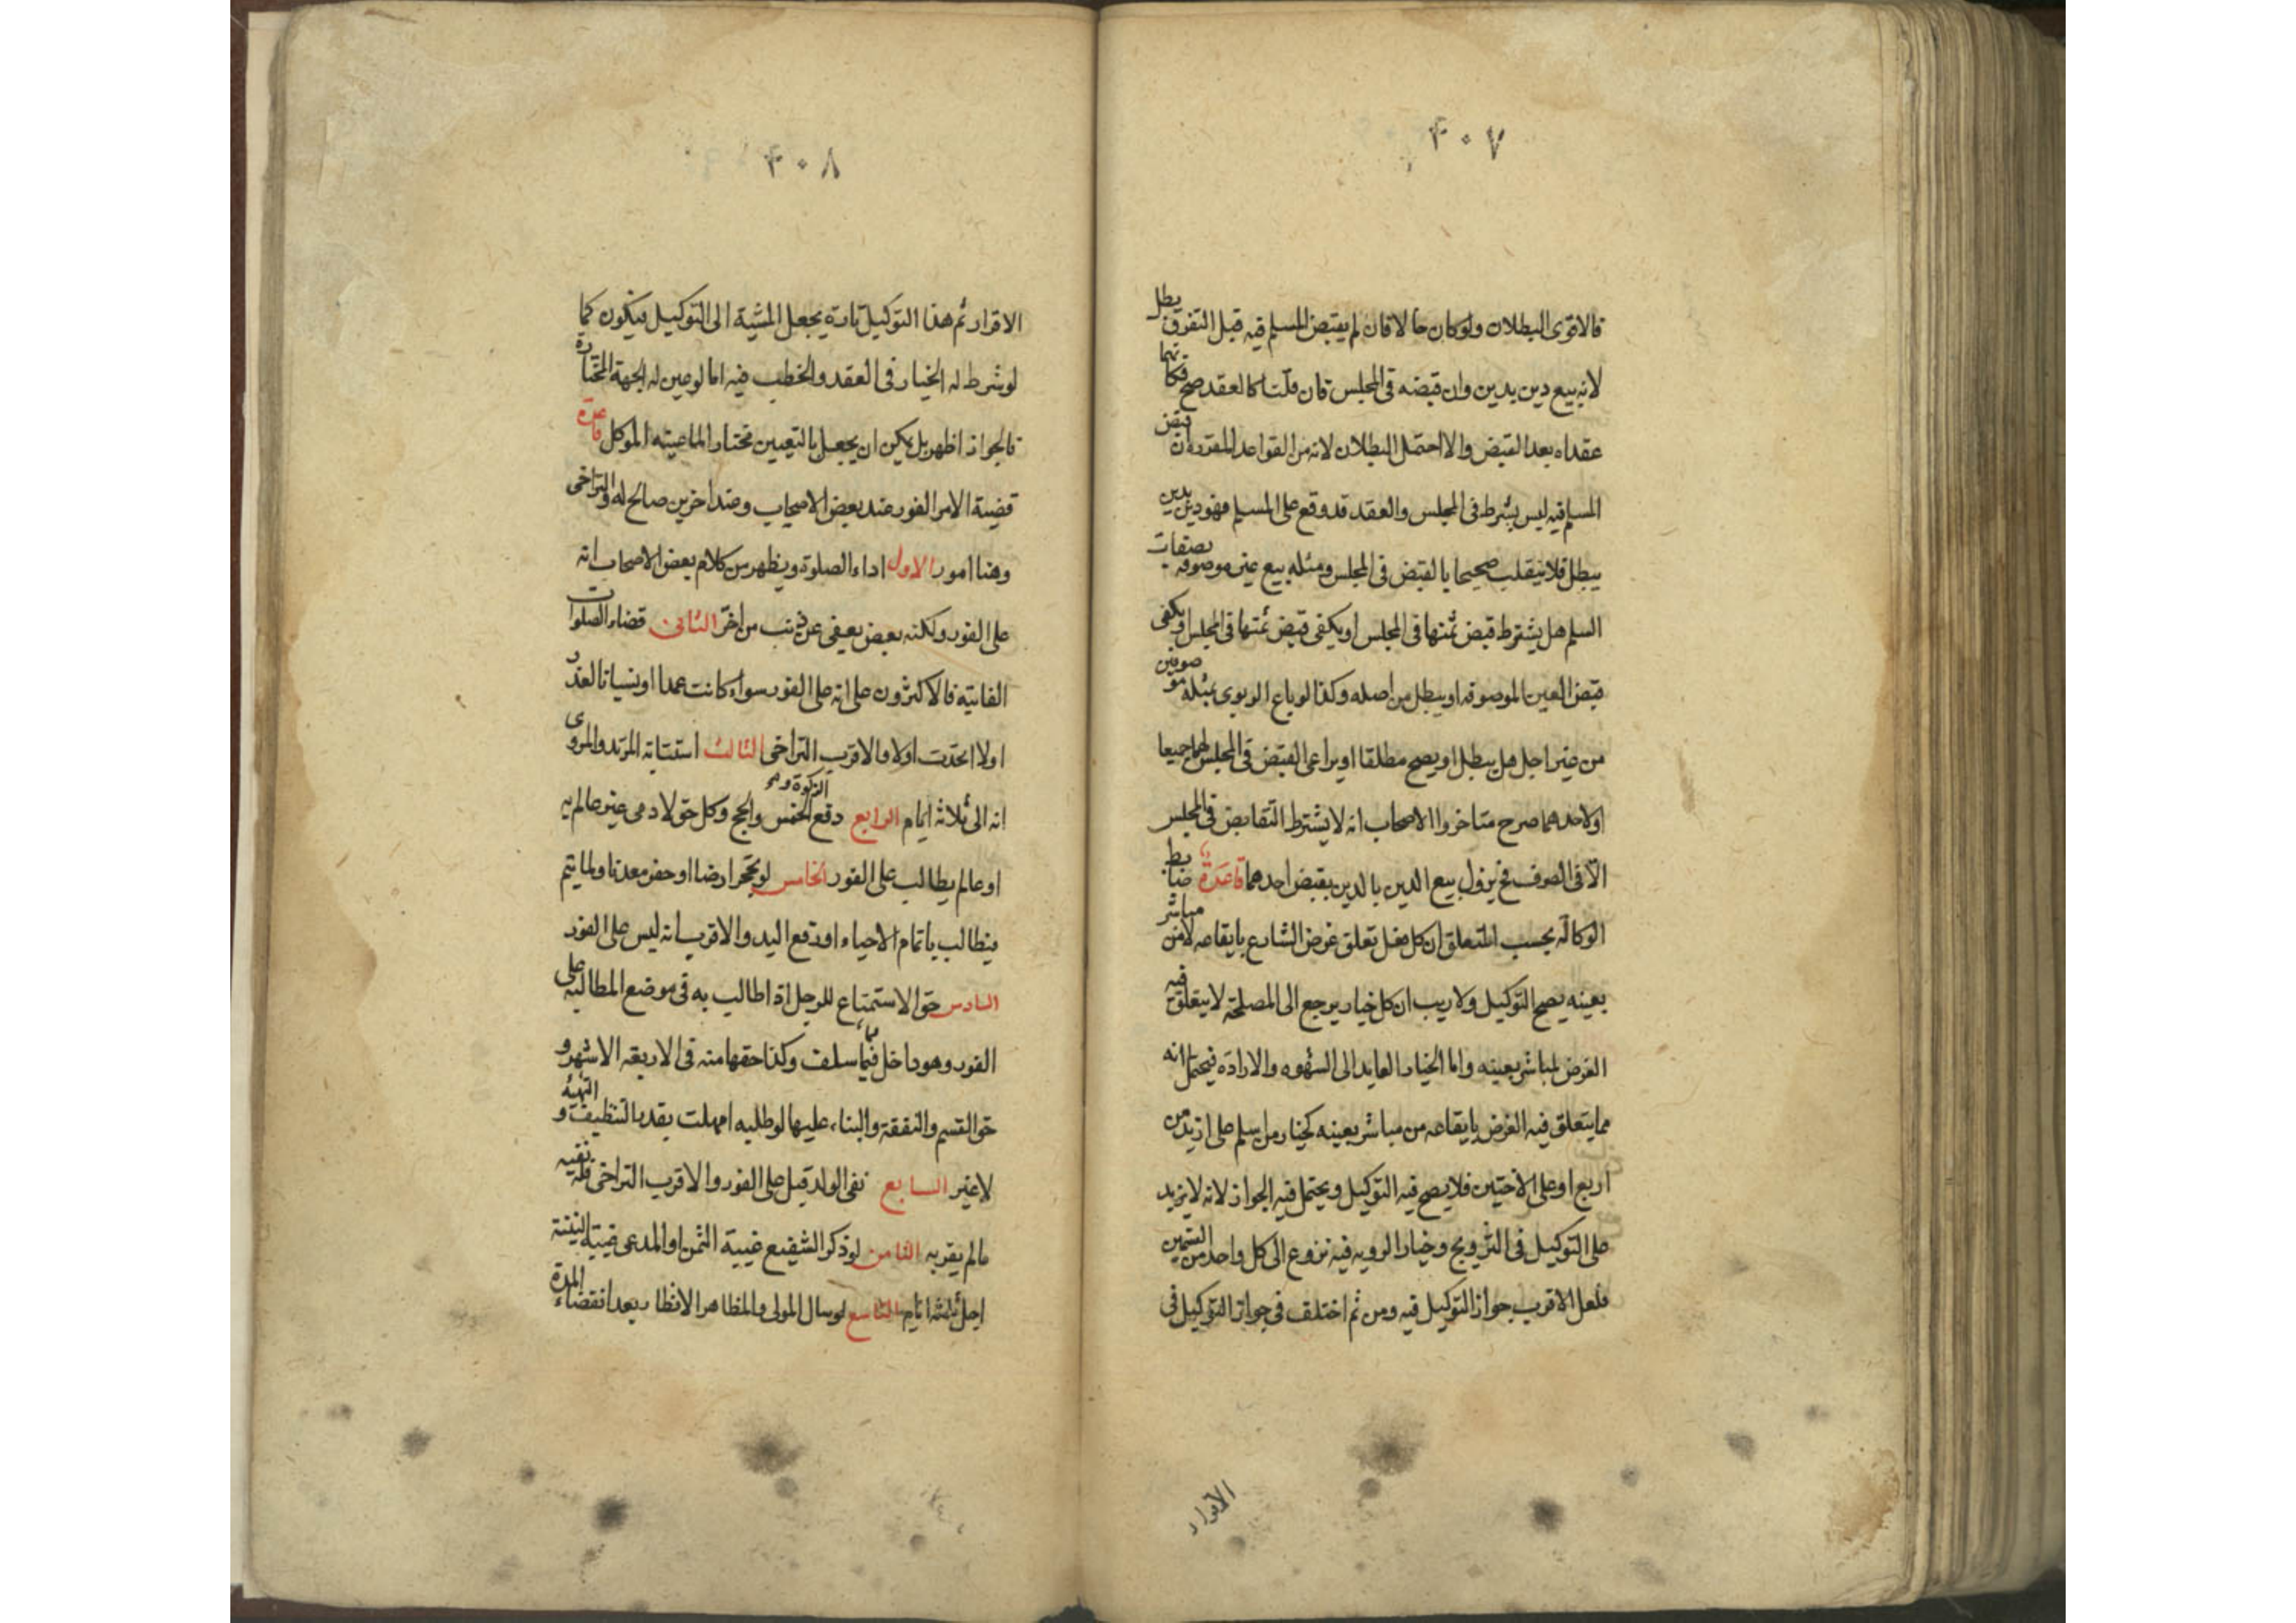 ٤٠٧
فالاقوى البطلان ولو كان حالا فان لم يقبض المسلم فيه قبل التفرق بطل
لانه بيع دين بدين وان قبضه في المجلس فان قلنا كالعقد صح فكانهما
عقداه بعد القبض والا احتمل البطلان لانه من القواعد المقررة ان قبض
المسلم فيه ليس بشرط في المجلس والعقد قد وقع على المسلم فهو دين بدين
يبطل فلا ينقلب صحيحا بالقبض في المجلس ومثله بيع عين موصوفه بصفات
السلم هل يشترط قبض ثمنها في المجلس او يكفي قبض ثمنها في المجلس او يكفي
قبض العين الموصوفه او يبطل من اصله وكذا لو باع الربوي بمثله موصوفين
من غير اجل هل يبطل او يصح مطلقا او يراعى القبض في المجلس لهما جميعا
او لاحدهما صرح متاخروا الاصحاب انه لا يشترط التقابض في المجلس
الا في الصرف فح يزول بيع الدين بالدين بقبض احدهما قاعدة ضابط
الوكالة بحسب المتعلق ان كل فعل تعلق غرض الشارع بايقاعه لا من مباشر
بعينه يصح التوكيل ولا ريب ان كل خيار يرجع الى المصلحة لا يتعلق فيه
الغرض لمباشر بعينه واما الخيار العايد الى الشهوه والاراده فيحتمل انه
مما يتعلق فيه الغرض بايقاعه من مباشر بعينه كخيار من اسلم على ازيد من
اربع او على الاختين فلا يصح فيه التوكيل ويحتمل فيه الجواز لانه لا يزيد
على التوكيل في التزويج وخيار الرويه فيه نزوع الى كل واحد من القسمين
فلعل الاقرب جواز التوكيل فيه ومن ثم اختلف في جواز التوكيل في
الاقرار
٤٠٨
الاقرار ثم هذا التوكيل تارة يجعل المشية الى التوكيل فيكون كما
لو شرط له الخيار في العقد والخطب فيه اما لو عين له الجهة المختارة
فالجواز اظهر بل يمكن ان يجعل بالتعيين مختار الما عينه الموكل قاعدة
قضية الامر الفور عند بعض الاصحاب وعند اخرين صالح له والتراخي
وهنا امور الاول اداء الصلوة ويظهر من كلام بعض الاصحاب انه
على الفور ولكنه بعض يعفى عن ذنب من اخر الثاني قضاء الصلوات
الفايته فالاكثرون على انه على الفور سواء كانت عمدا او نسيانا لعذر
اولا اتحدت اولا والاقرب التراخي الثالث استتابة المرتد والمروي
انه الى ثلاثة ايام الرابع دفع الزكوة والخمس والحج وكل حق لادمي غير عالم به
او عالم يطالب على الفور الخامس لو تحجر ارضا او حفر معدنا ولما يتم
فيطالب باتمام الاحياء او رفع اليد والاقرب انه ليس على الفور
السادس حق الاستمتاع للرجل اذا طالب به في موضع المطالبة على
الفور وهو داخل فيما سلف وكذا حقها منه في الاربعة الاشهر و
حق القسم والنفقة والبناء عليها لو طلبه امهلت بقدر التنظيف و التهيئة
لا غير السابع نفي الولد قيل على الفور والاقرب التراخي فله نفيه
مالم يقر به الثامن لو ذكر الشفيع غيبة الثمن او المدعي غيبة البينة
اجل ثلثة ايام التاسع لو سال المولى والمظاهر الانظار بعد انقضاء المدة